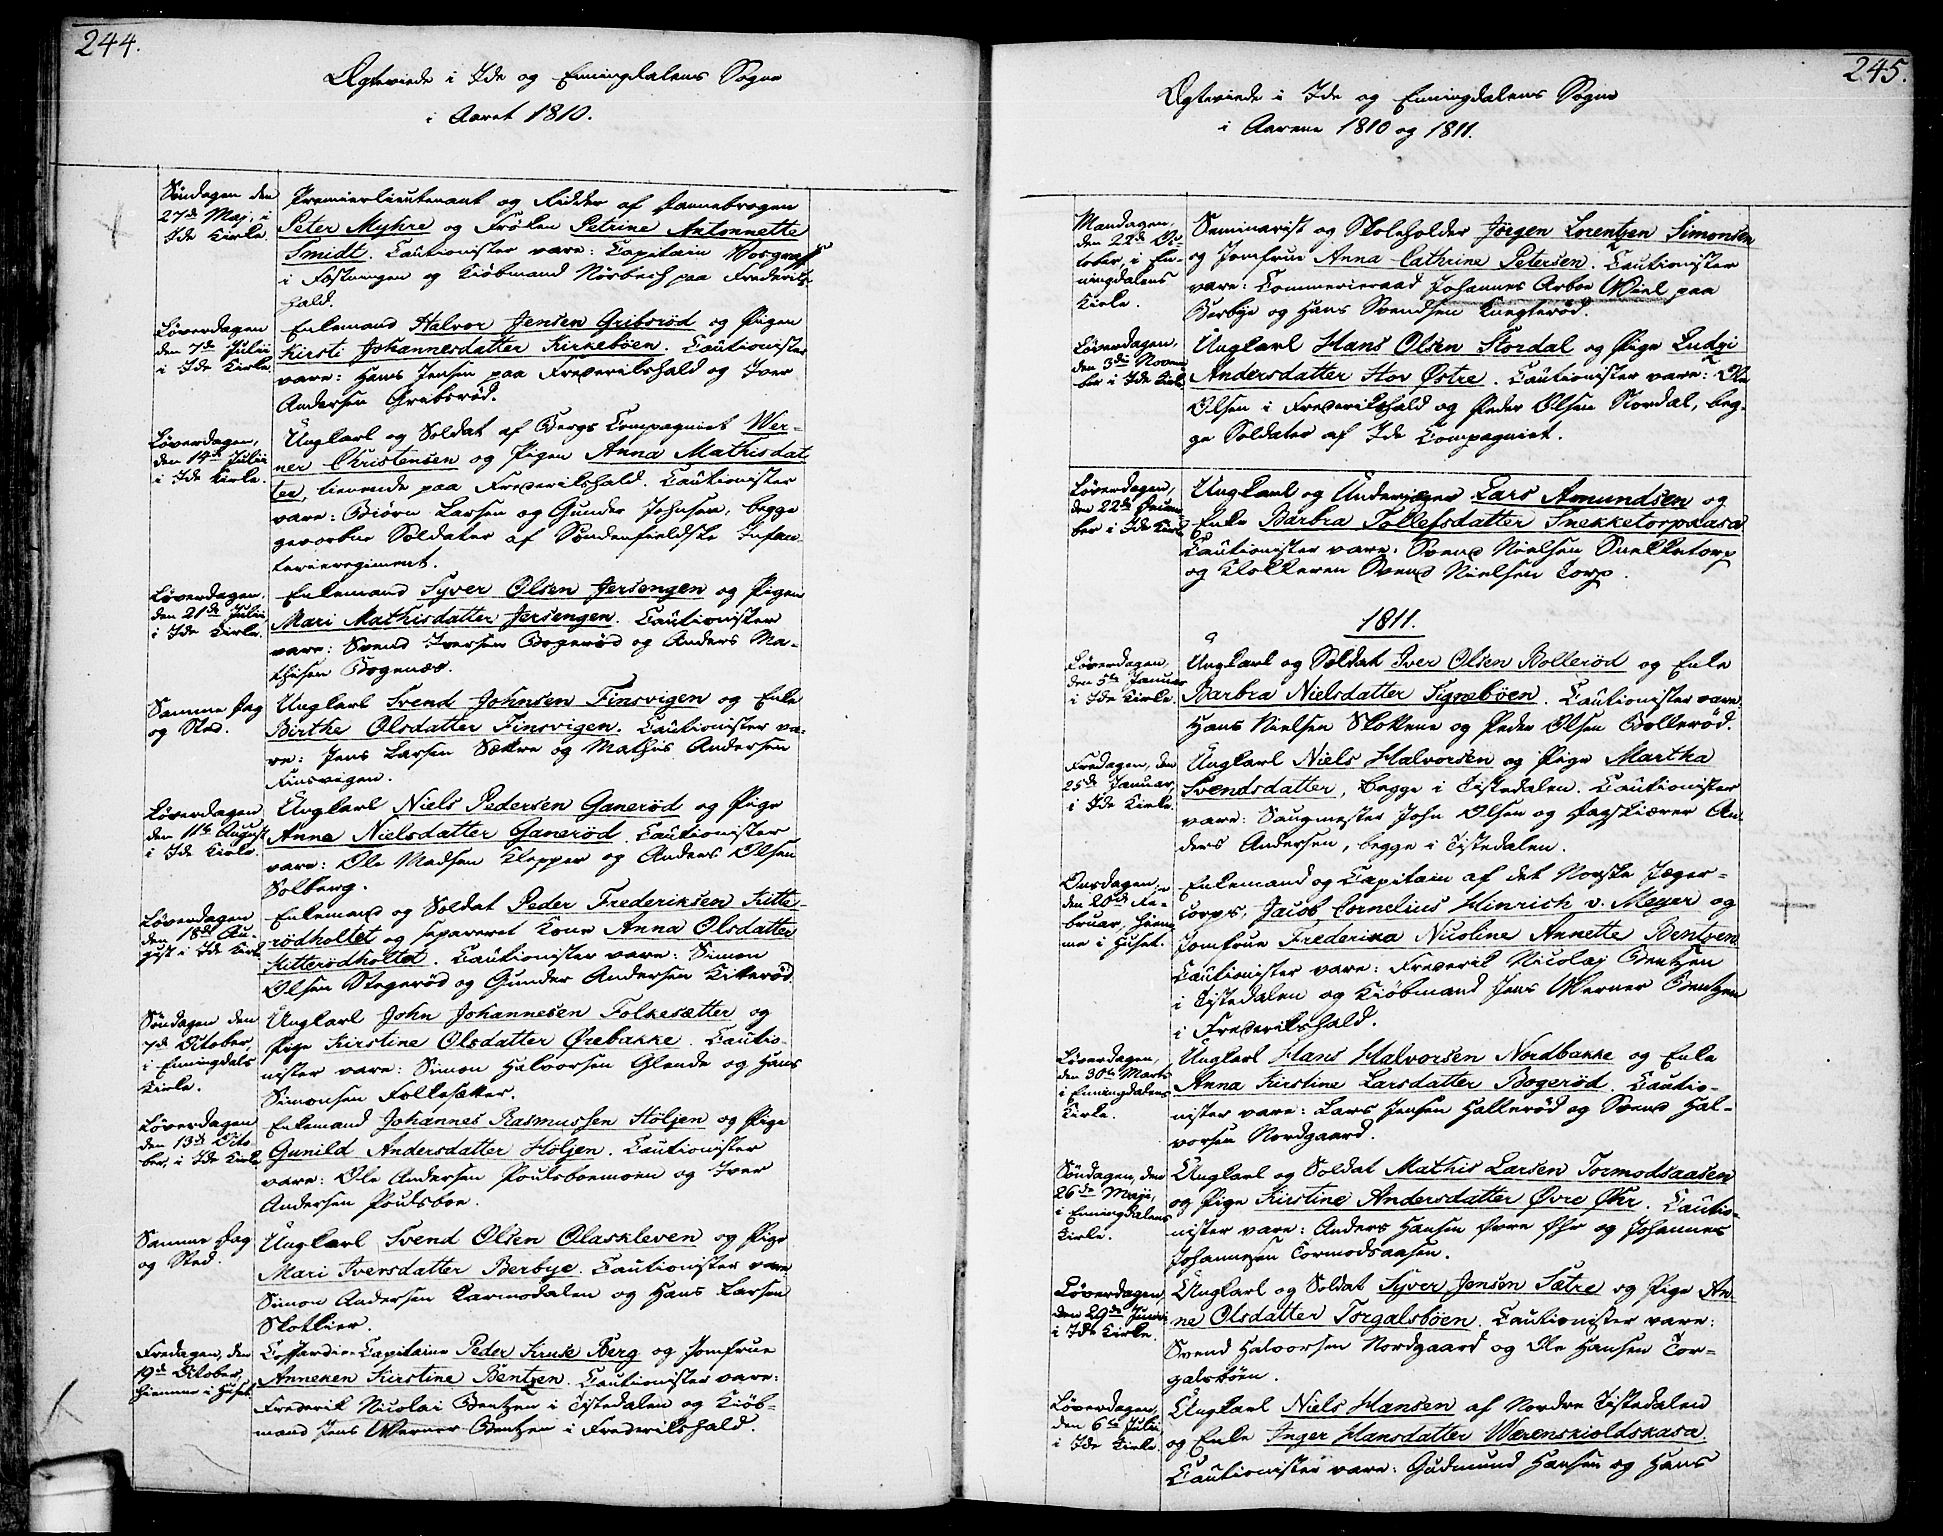 244.
Ægteviede i Ide og Enningdalens Sogne
i Aaret 1810.
Søndagen den
27de Maj, i
Ide Kirke.
Premierlieutenant og Ridder af Dannebrogen
Peter Myhre og Frøken Petrine Antonnette
Smidt. Cautionister vare: Capitain
i Fæstningen og Kiøbmand Nörbech paa Frederiks-
hald.
Løverdagen
den 7de Julii
i Ide Kirke.
Enkemand Halvor Jensen Gribsröd og Pigen
Kirsti Johannesdatter Kirkebøen. Cautionister
vare: Hans Jensen paa Friderikshald og Iver
Andersen Gribsrød.
Løverdagen,
den 14de Julii
i Ide Kirke.
Ungkarl og Soldat af Bergs Compagniet Wer-
ner Christensen og Pigen Anna Mathisdat-
ter, tienende paa Friderikshald. Cautionister
vare: Biørn Larsen og Gunder Johnsen, begge
gevorbne Soldater af Søndenfieldske Infan-
terieregiment.
Løverdagen,
den 21de Julii
i Ide Kirke.
Enkemand Syver Olsen Jersengen og Pigen
Mari Mathisdatter Jersengen. Cautionister
vare: Svend Iversen Bogerød og Anders Ma-
thisen Bogenæs.
Samme Dag
og Sted.
Ungkarl Svend Johnsen Finsvigen og Enke
Birthe Olsdatter Finsvigen. Cautionister va-
re: Jens Larsen Sætre og Mathis Andersen
Finsvigen.
Løverdagen
den 11te August
i Ide Kirke.
Ungkarl Niels Pedersen Ganerød og Pige
Anne Nielsdatter Ganerød. Cautionister
vare: Ole Madsen Klepper og Anders Olsen
Solberg.
Løverdagen
den 18de Au-
gust i Ide Kirke
Enkemand og Soldat Peder Frederiksen Kitte-
rödholtet og separeret Kone Anna Olsdatter
Kitterödholtet. Cautionister vare: Simon
Olsen Stegerød og Gunder Andersen Kiterød.
Søndagen den
7de October,
i Enningdals
Kirke.
Ungkarl John Johannesen Folkesætter og
Pige Kirstine Olsdatter Ørebakke. Cautio-
nister vare: Simon Halvorsen Glende og Hans
Simonsen Folkesætter.
Løverdagen
den 13de Octo-
ber, i Ide Kirke
Enkemand Johannes Rasmussen Höljen og Pige
Gunild Andersdatter Höljen. Cautionister
vare: Ole Andersen Poulsboemoen og Iver
Andersen Poulsboe.
Samme Dag
og Sted.
Ungkarl Svend Olsen Olaskleven og Pige
Mari Iversdatter Berbye. Cautionister vare
Simon Andersen Karmodalen og Hans Larsen
Skotlier.
Fredagen, den
19de October,
hiemme i Huset
Cofferdie-Capitain Peder Kruse Berg og Jomfrue
Anneken Kirstine Bentzen. Cautionister vare:
Frederik Nicolai Bentzen i Tistedalen og Kiøb-
mand Jens Werner Bentzen i Frederikshald.
245.
Ægteviede i Ide og Enningdalens Sogne
i Aarene 1810 og 1811.
Mandagen,
den 22de Oc-
tober, i En-
ningdalens
Kirke.
Seminarist og Skoleholder Jörgen Lorentzen Simonsen
og Jomfrue Anna Cathrine Petersen. Cautionister
vare: Commerieraad Johannes Arboe Wiel paa
Berbye og Hans Svendsen
Løverdagen,
den 3die Novem-
ber i Ide Kirke
Ungkarl Hans Olsen Stordal og Pige Ludvi
Andersdatter Hov Østre. Cautionister vare: Ole
Olsen i Frederikshald og Peder Olsen Stordal, beg-
ge Soldater af Ide Compagniet.
Løverdagen,
den 22de Decem-
ber i Ide Kirke
Ungkarl og Underjæger Lars Amundsen og
Enke Barbra Tollefsdatter Snekketorpskasa
Cautionister vare: Svend Nielsen Snekketorp
og Klokkeren Svend Nielsen Torp.
1811.
Løverdagen,
den 5te Januar
i Ide Kirke.
Ungkarl og Soldat Iver Olsen Bollerød og Enke
Barbra Nielsdatter Signebøen. Cautionister vare
Hans Nielsen Skottene og Peder Olsen Bollerød.
Fredagen, den
25de Januar,
i Ide Kirke.
Ungkarl Niels Halvorsen og Pige Martha
Svendsdatter, begge i Tistedalen. Cautionister
vare: Saugmester John Olsen og Sagskiærer An-
ders Andersen, begge i Tistedalen.
Onsdagen,
den 20de Fe-
bruar, hiem-
me i Huset.
Enkemand og Capitain af det Norske Jæger-
corps, Jacob Cornelius Hinrich v. Meyer og
Jomfrue Frederika Nicoline Annette Bentsen
Cautionister vare: Frederik Nicolaj Bentzen
i Tistedalen og Kiöbmand Jens Werner Bentzen
i Frederikshald.
Løverdagen,
den 30te Marts
i Enningdalens
Kirke.
Ungkarl Hans Halvorsen Nordbakke og Enke
Anna Kirstine Larsdatter Bogerød. Cautio-
nister vare: Lars Jensen Hallerød og Svend Hal-
vorsen Nordgaard.
Søndagen, den
26de Maji,
i Enningdalens
Kirke.
Ungkarl og Soldat Mathis Larsen Tormodsaasen
og Pige Kirstine Andersdatter Øvre Øhr. Cautio-
nister vare: Anders Hansen Øvre Øhr og Johannes
Johannesen Tormodsaasen.
Løverdagen,
den 29de Junii
i Ide Kirke.
Ungkarl og Soldat Syver Jensen Sætre og Pige An-
ne Olsdatter Torgalsbøen. Cautionister vare:
Svend Halvorsen Nordgaard og Ole Hansen Tor-
galsbøen.
Løverdagen,
den 6te Julii
i Ide Kirke.
Ungkarl Niels Hansen af Nordre Tistedalen
og Enke Inger Hansdatter Wærenskioldskasa.
Cautionister vare: Gudmund Hansen og Hans